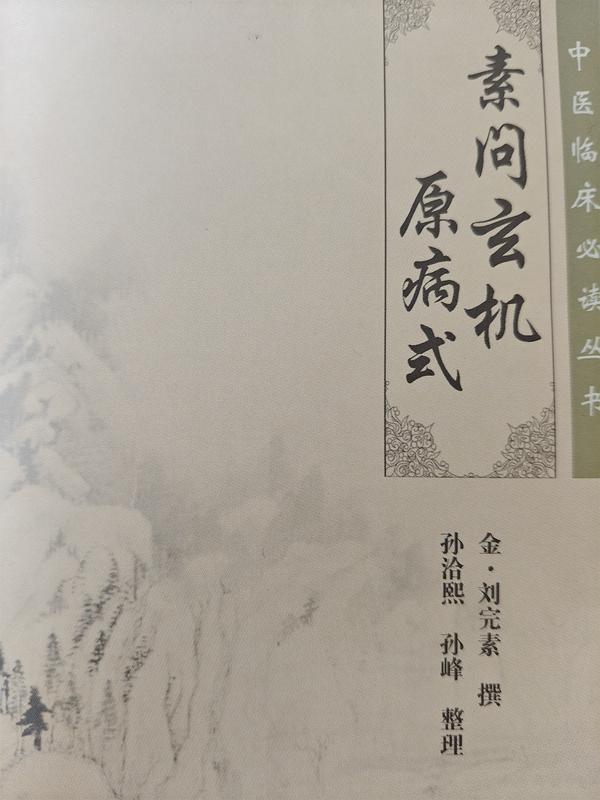 中医临床必读丛书
素问玄机
原病式
金·刘完素 撰
孙洽熙 孙峰 整理